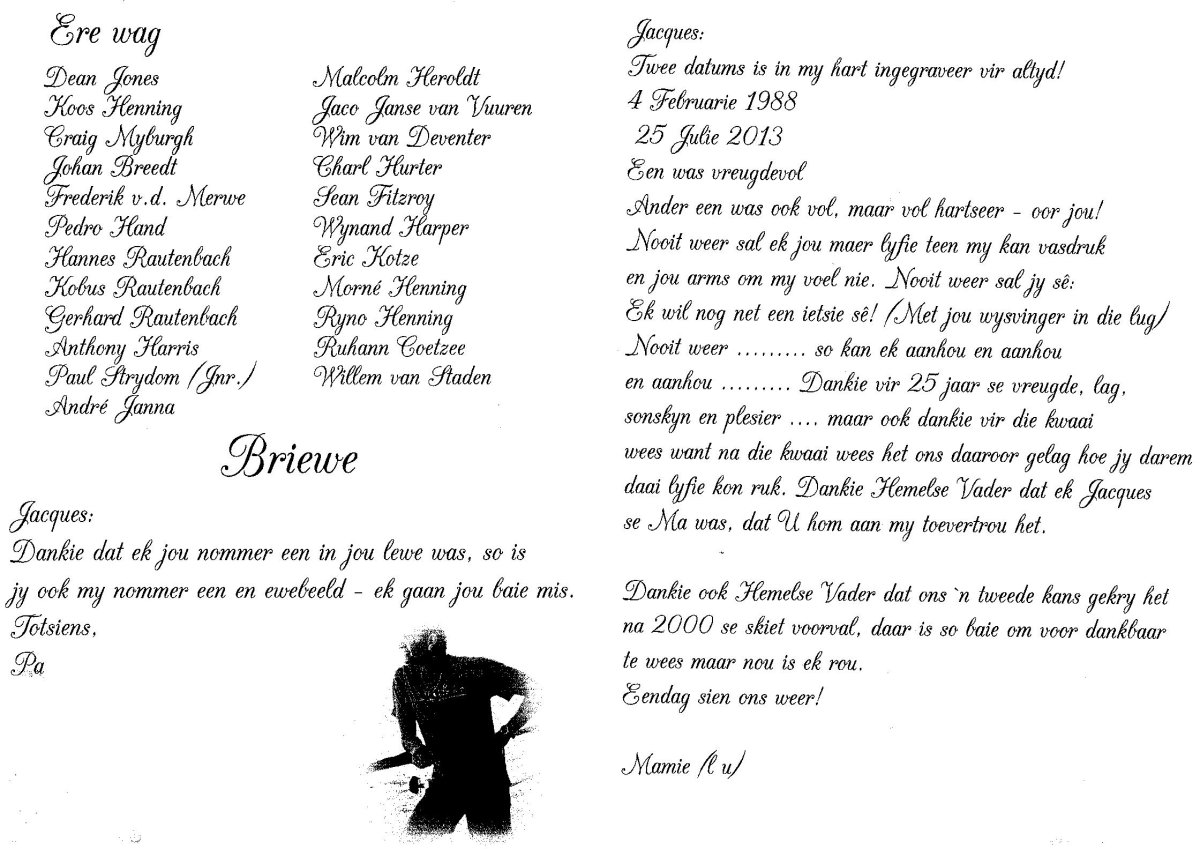 Ere wag
Dean Jones
Koos Henning
Craig Myburgh
Johan Breedt
Frederik v.d. Merwe
Pedro Hand
Hannes Rautenbach
Kobus Rautenbach
Gerhard Rautenbach
Anthony Harris
Paul Strydom (Jnr.)
André Janna
Malcolm Heroldt
Jaco Janse van Vuuren
Wim van Deventer
Charl Hurter
Sean Fitzroy
Wynand Harper
Eric Kotze
Morné Henning
Ryno Henning
Ruhann Coetzee
Willem van Staden
Briewe
Jacques:
Dankie dat ek jou nommer een in jou lewe was, so is
jy ook my nommer een en ewebeeld - ek gaan jou baie mis.
Totsiens,
Pa
Jacques:
Twee datums is in my hart ingegraveer vir altyd!
4 Februarie 1988
25 Julie 2013
Een was vreugdevol
Ander een was ook vol, maar vol hartseer - oor jou!
Nooit weer sal ek jou maer lyfie teen my kan vasdruk
en jou arms om my voel nie. Nooit weer sal jy sê:
Ek wil nog net een ietsie sê! (Met jou wysvinger in die lug)
Nooit weer ......... so kan ek aanhou en aanhou
en aanhou ......... Dankie vir 25 jaar se vreugde, lag,
sonskyn en plesier .... maar ook dankie vir die kwaai
wees want na die kwaai wees het ons daaroor gelag hoe jy darem
daai lyfie kon ruk. Dankie Hemelse Vader dat ek Jacques
se Ma was, dat U hom aan my toevertrou het.
Dankie ook Hemelse Vader dat ons `n tweede kans gekry het
na 2000 se skiet voorval, daar is so baie om voor dankbaar
te wees maar nou is ek rou.
Eendag sien ons weer!
Mamie (l u)